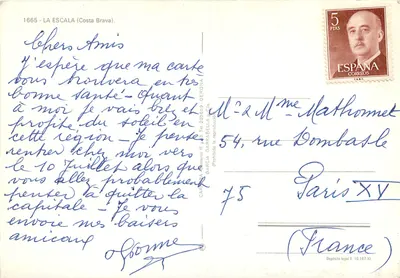 1665 - LA ESCALA (Costa Brava)
Chers Amis
J'espère que ma carte
vous trouvera en très
bonne santé - Quant
à moi je vais bien et
profite du soleil en
cette région - Je pense
rentrer chez moi vers
le 10 Juillet alors que
vous allez probablement
penser à quitter la
capitale - Je vous
envoie mes baisers
amicaux
Yvonne
5
PTAS
ESPAÑA
CORREOS
Mr & Mme Mathonnet
54, rue Dombasle
75 Paris XV
(France)